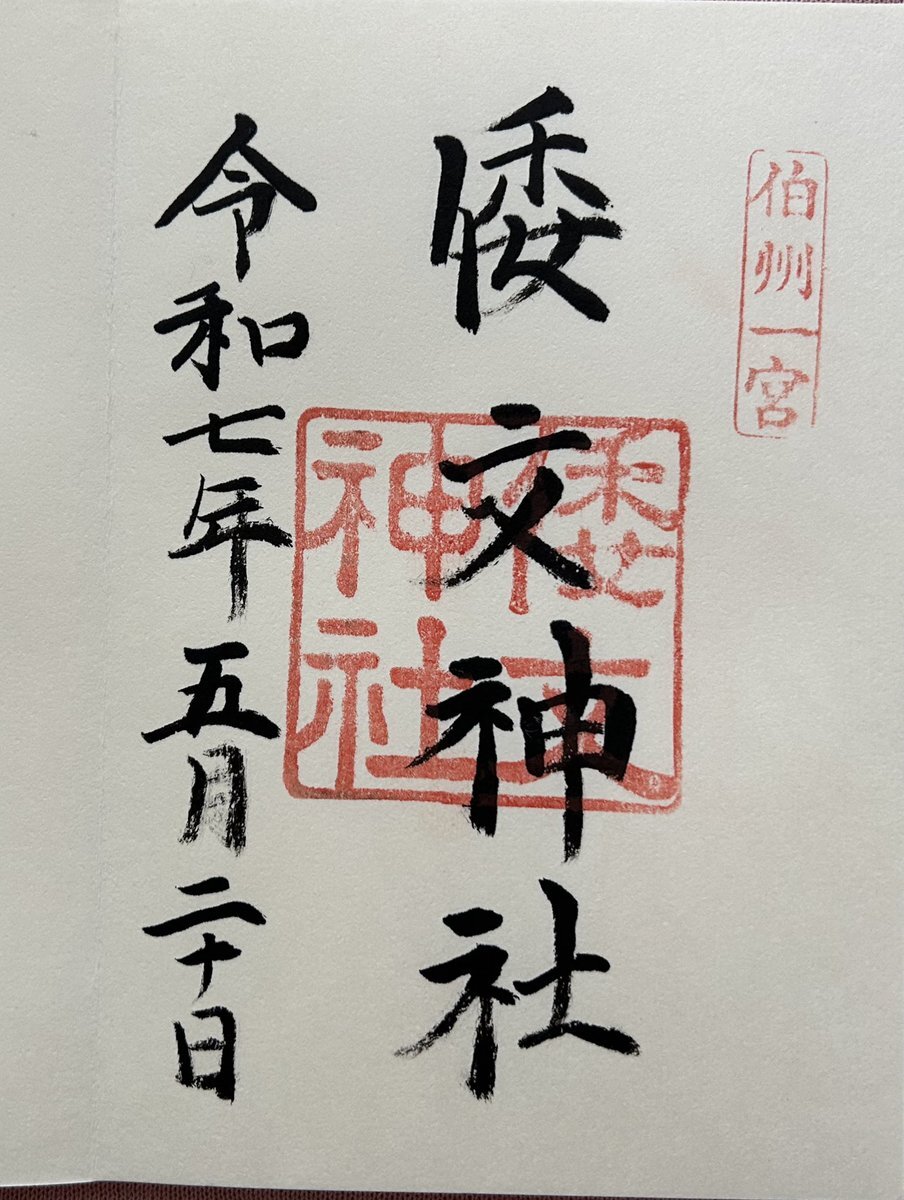 伯州一宮
倭文神社
倭文神社
令和七年五月二十日